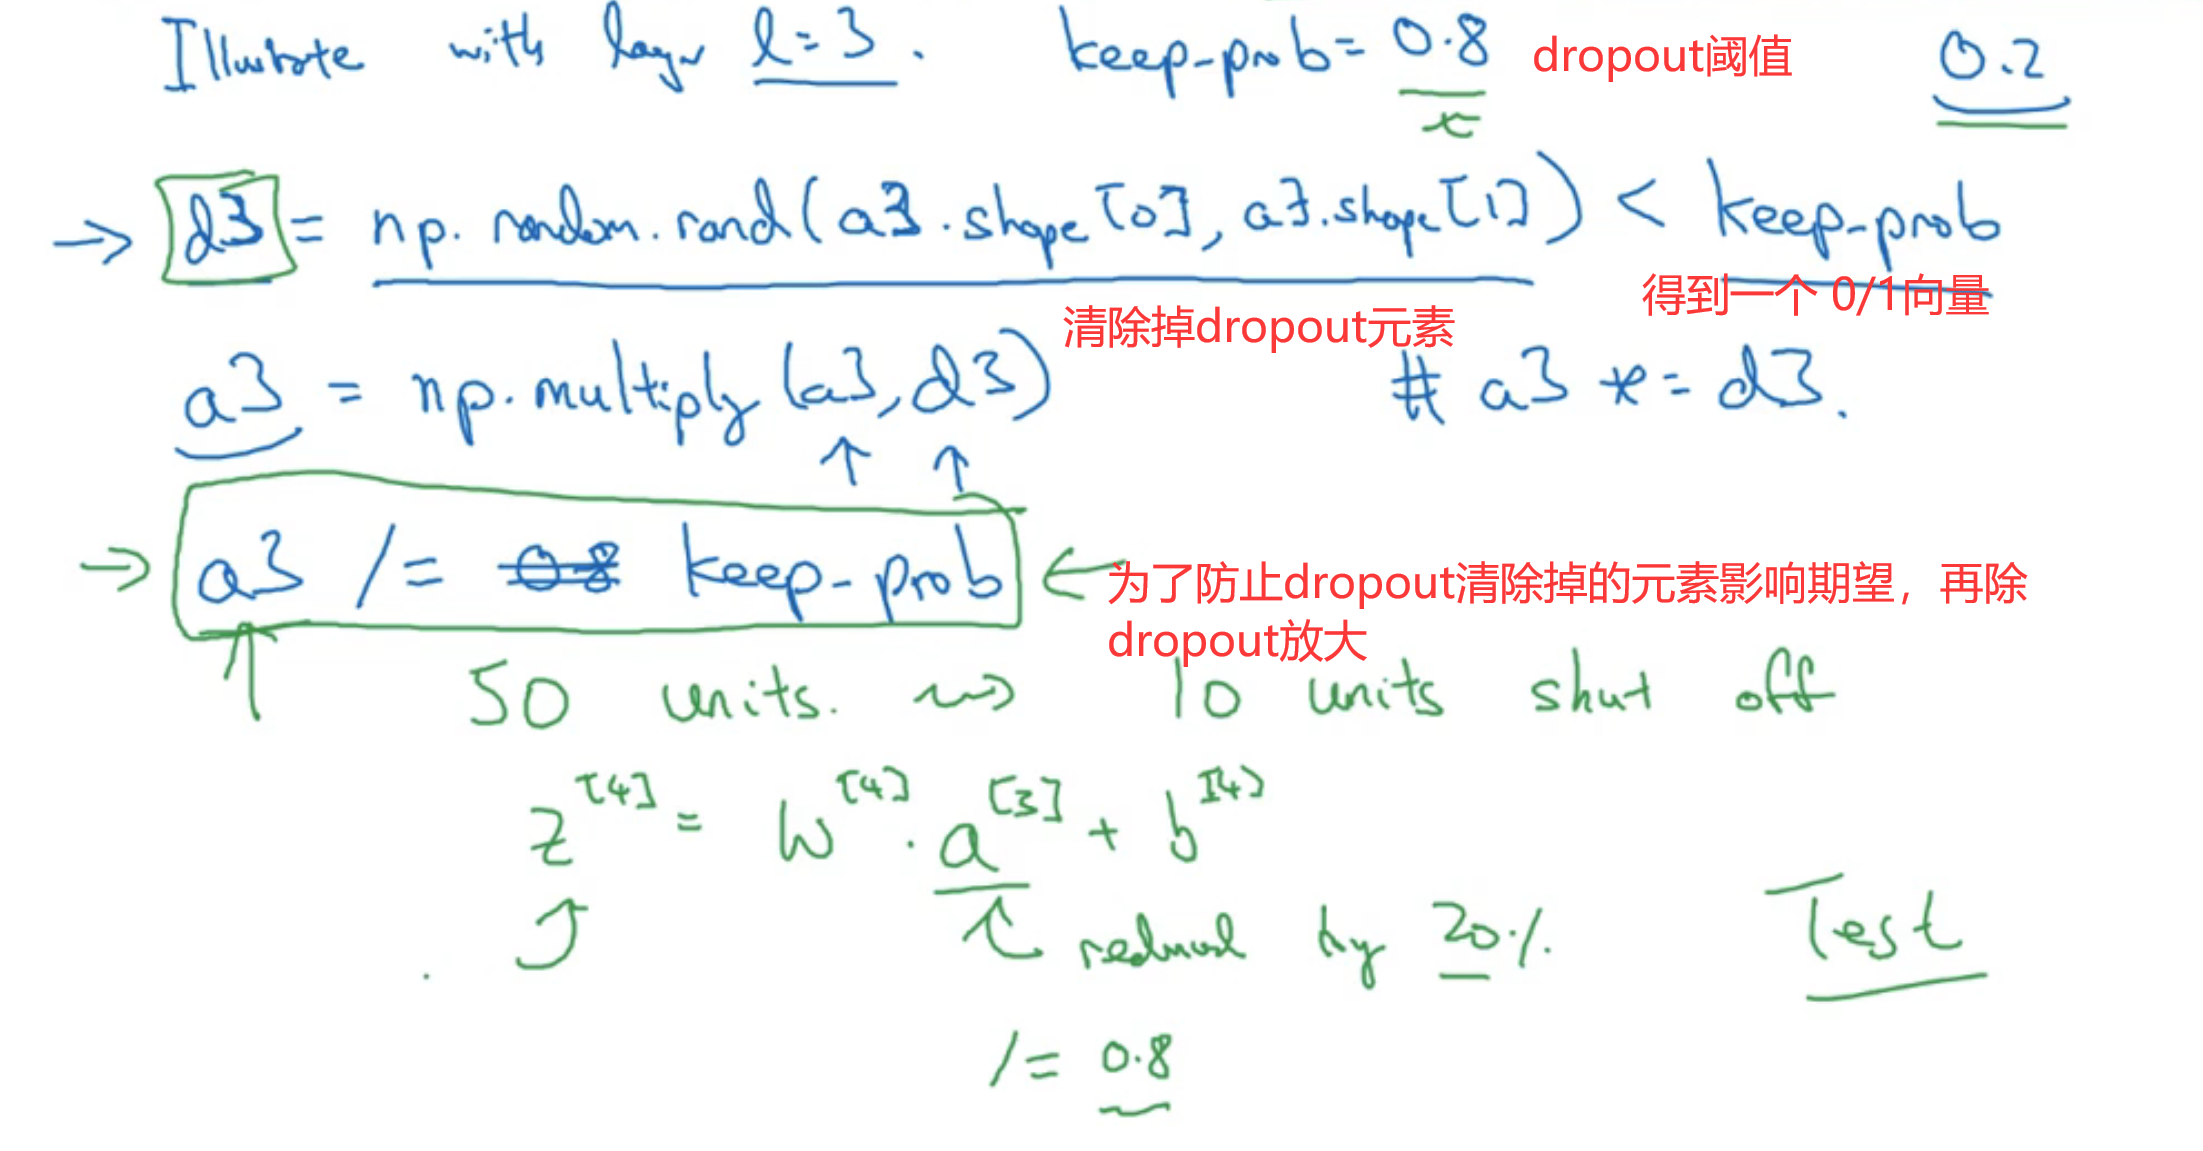 Illustrate with layer l=3. keep-prob= 0.8 dropout阈值 0.2
→ d3 = np.random.rand(a3.shape[0], a3.shape[1]) < keep-prob
得到一个 0/1向量
清除掉dropout元素
a3 = np.multiply(a3, d3) # a3 *= d3.
→ a3 /= 0.8 keep-prob ← 为了防止dropout清除掉的元素影响期望，再除
dropout放大
50 units. ⇝ 10 units shut off
z^[4] = w^[4] · a^[3] + b^[4]
reduced by 20%.
Test
/= 0.8